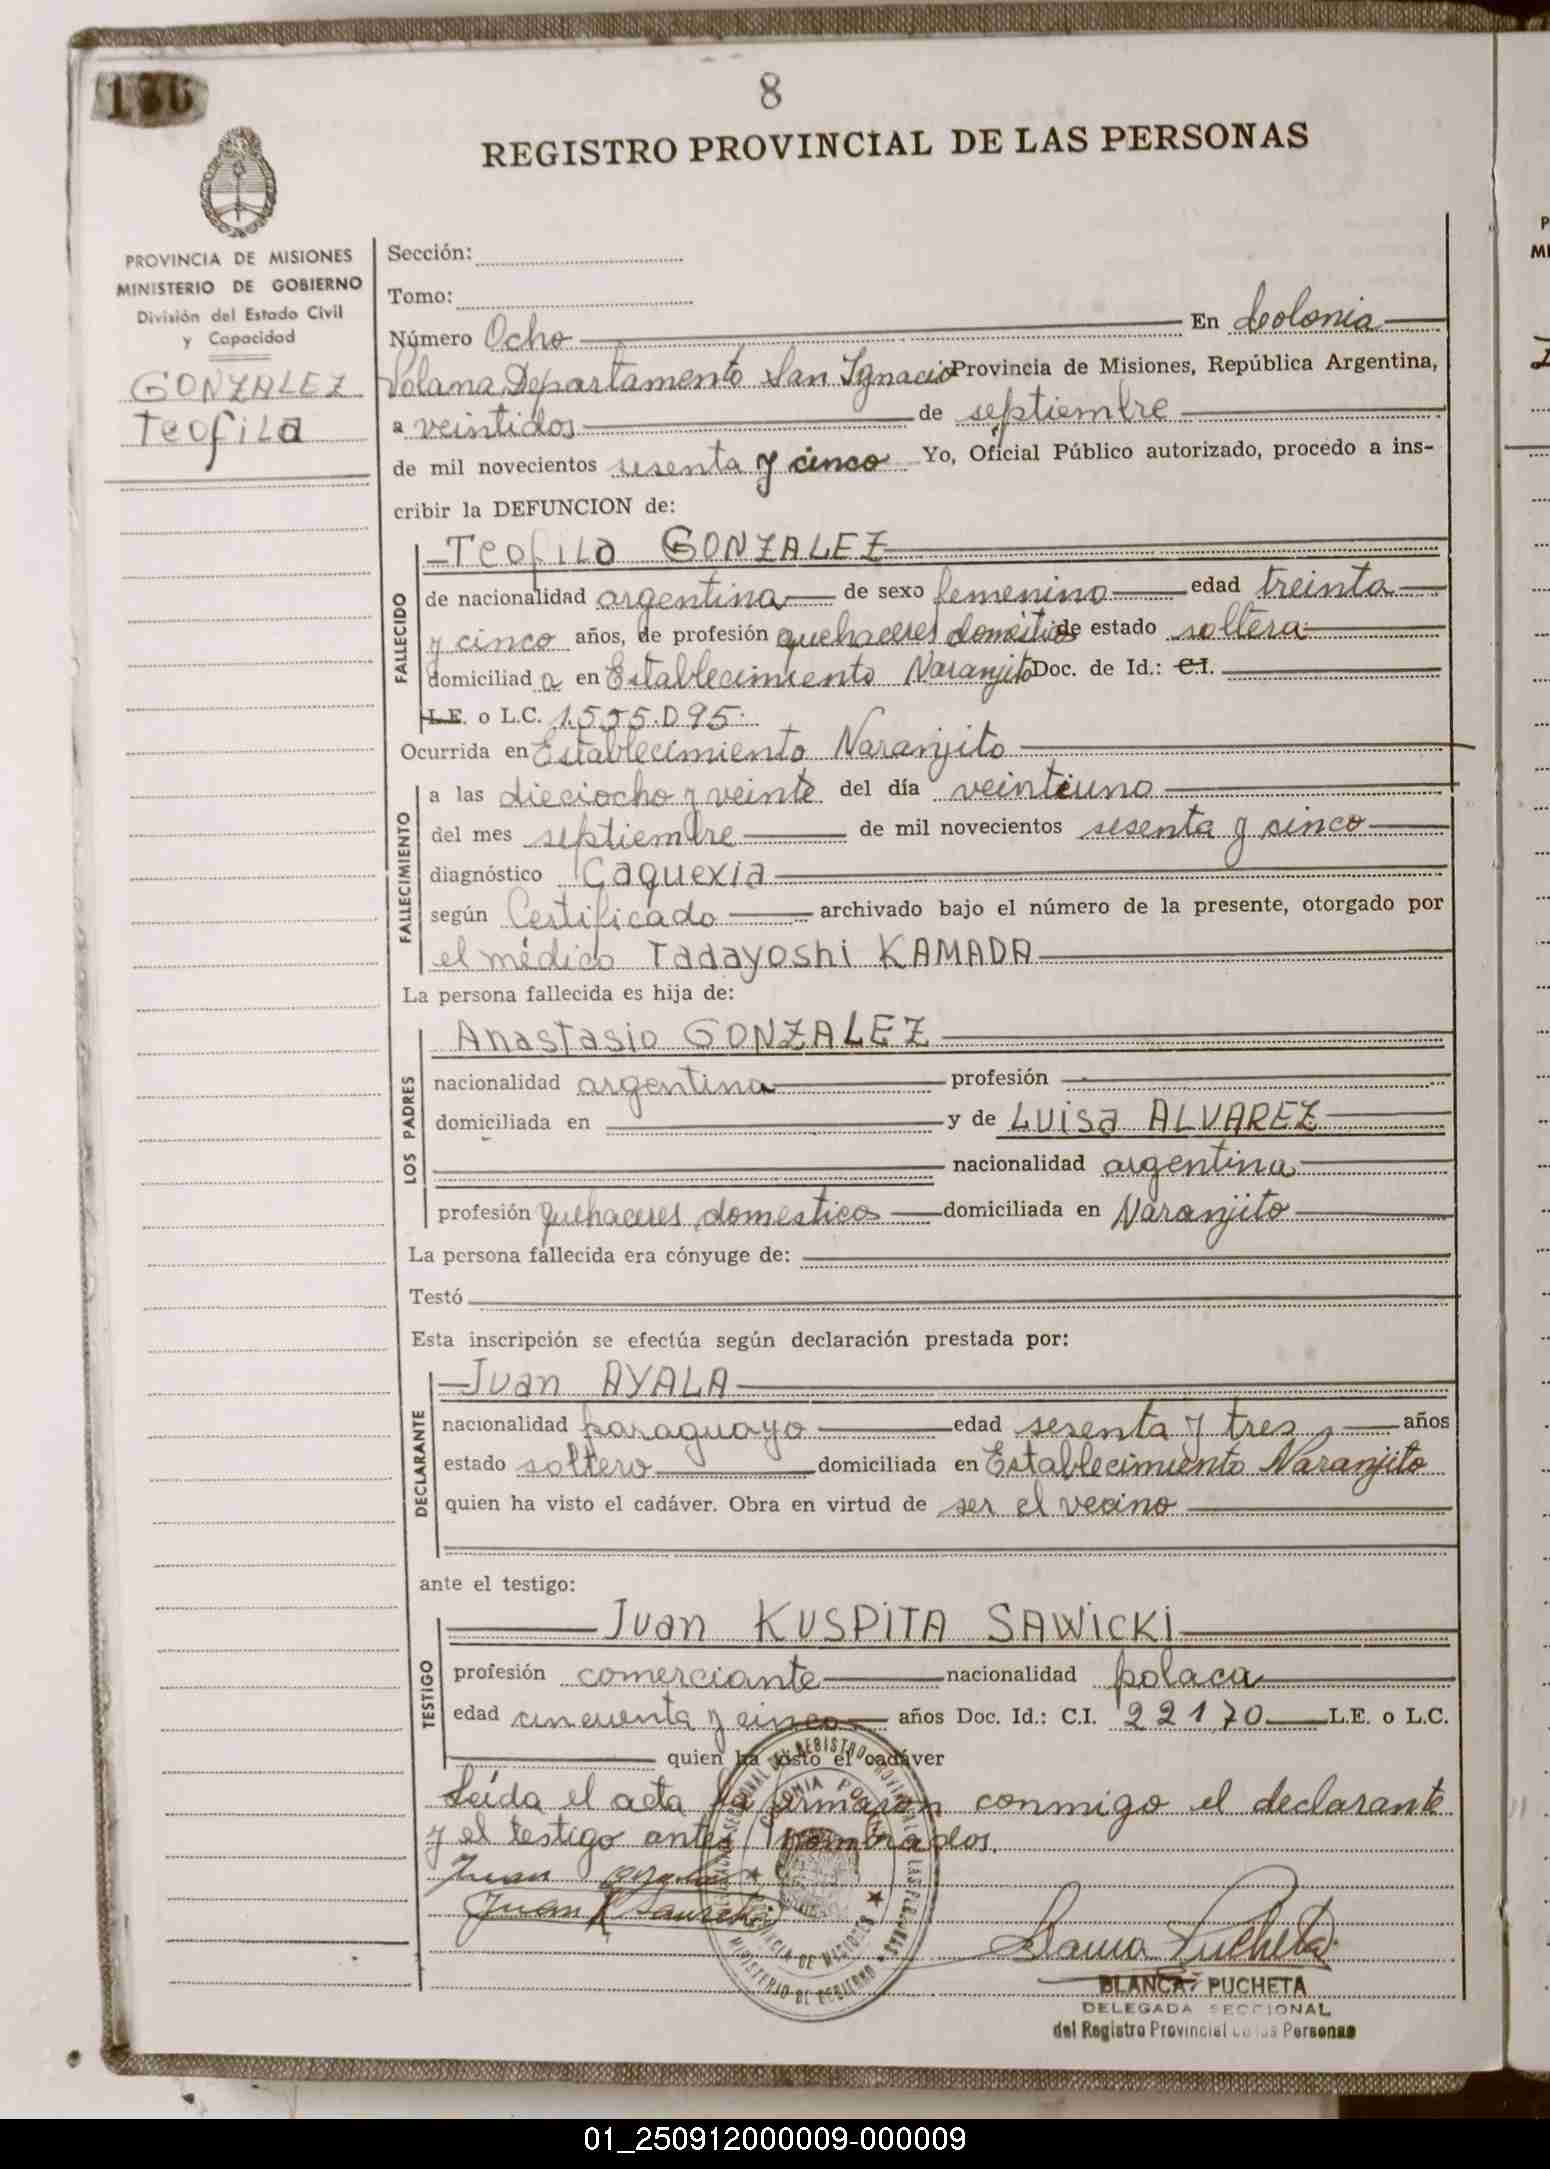 8
REGISTRO PROVINCIAL DE LAS PERSONAS
PROVINCIA DE MISIONES
MINISTERIO DE GOBIERNO
División del Estado Civil
y Capacidad
GONZALEZ
Teofila
Sección:
Tomo:
Número Ocho En Colonia
Polana Departamento San Ignacio Provincia de Misiones, República Argentina,
a veintidos de septiembre
de mil novecientos sesenta y cinco Yo, Oficial Público autorizado, procedo a ins-
cribir la DEFUNCION de:
FALLECIDO
Teofila GONZALEZ
de nacionalidad argentina de sexo femenino edad treinta
y cinco años, de profesión quehaceres domesticos de estado soltera
domiciliad a en Establecimiento Naranjito Doc. de Id.: C.I.
L.E. o L.C. 1.555.095.
Ocurrida en Establecimiento Naranjito
FALLECIMIENTO
a las dieciocho y veinte del día veintiuno
del mes septiembre de mil novecientos sesenta y cinco
diagnóstico Caquexia
según Certificado archivado bajo el número de la presente, otorgado por
el médico Tadayoshi KAMADA
La persona fallecida es hija de:
LOS PADRES
Anastasio GONZALEZ
nacionalidad argentina profesión
domiciliada en y de Luisa ALVAREZ
nacionalidad argentina
profesión quehaceres domesticos domiciliada en Naranjito
La persona fallecida era cónyuge de:
Testó
Esta inscripción se efectúa según declaración prestada por:
DECLARANTE
Juan AYALA
nacionalidad paraguayo edad sesenta y tres años
estado soltero domiciliada en Establecimiento Naranjito
quien ha visto el cadáver. Obra en virtud de ser el vecino
ante el testigo:
TESTIGO
Juan KUSPITA SAWICKI
profesión comerciante nacionalidad polaca
edad cincuenta y cinco años Doc. Id.: C.I. 22170 L.E. o L.C.
quien ha visto el cadáver
Leída el acta la firmaron conmigo el declarante
y el testigo antes nombrados.
Juan Ayala
Blanca Pucheta
BLANCA PUCHETA
DELEGADA SECCIONAL
del Registro Provincial de las Personas
01_250912000009-000009